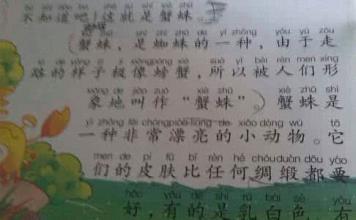 不知道吧!这就是蟹蛛
xiè zhū shì zhī zhū de yì zhǒng yóu yú zǒu
(蟹蛛,是蜘蛛的一种,由于走
lù de yàng zi jí xiàng páng xiè suǒ yǐ bèi rén men xíng
路的样子极像螃蟹,所以被人们形
xiàng de jiào zuò xiè zhū xiè zhū shì
象地叫作“蟹蛛”。)蟹蛛是
yì zhǒng fēi cháng piào liang de xiǎo dòng wù tā
一种非常漂亮的小动物。它
men de pí fū bǐ rèn hé chóu duàn dōu yào
们的皮肤比任何绸缎都要
hǎo yǒu de shì rǔ bái sè
好,有的是乳白色,